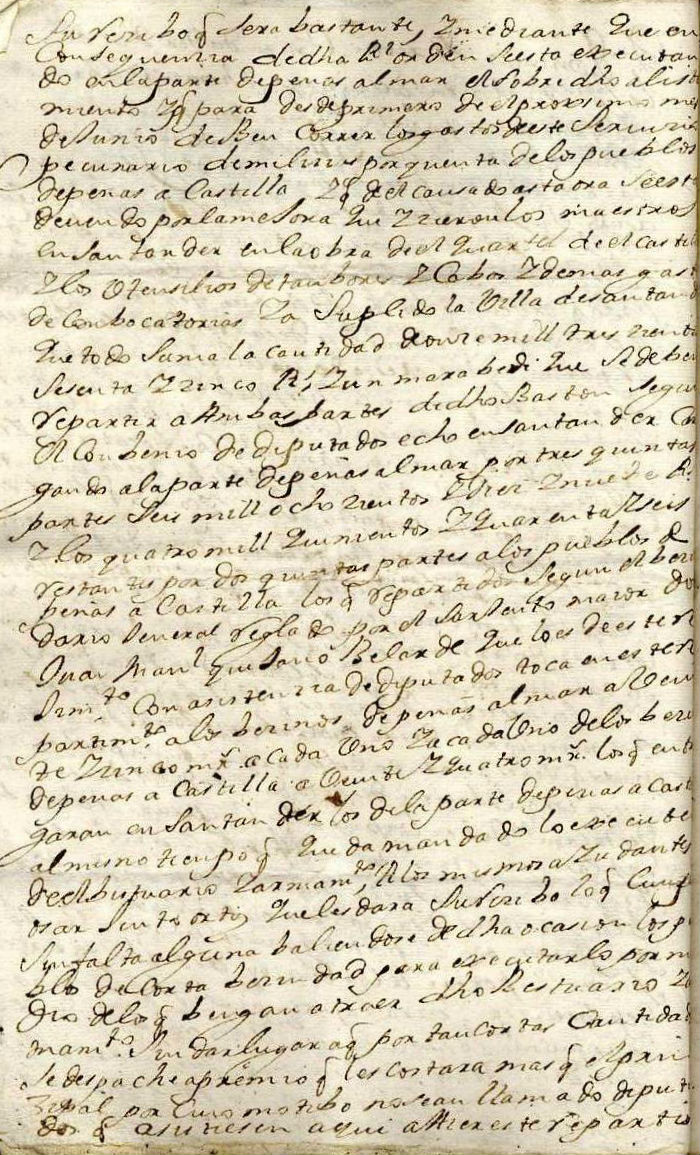 su rezibo q̃ sera bastante, y mediante que en
consequenzia de dha Rl orden se esta executan
do en la parte de penas al mar el sobredho alista
miento y q̃ para desde primero de el proximo mes
de Junio deben correr los gastos de este servizio
pecuniario de milizias por quenta de los pueblos
de penas a Castilla y q̃ de el causado asta ora se esta
deviendo por la mesora que yzieron los maestros
en Santander en la obra de el quartel de el Castill
y los utensilios de tambores y Cabos y demas gast
de Conbocatorias ya suplido la Villa de Santand
que todo suma la cantidad de onze mill tres zient
sesenta y zinco Rs, y un marabedi que se deben
repartir a Ambas partes de dho Baston segun
el Conbenio de diputados echo en Santander Car
gando a la parte de peñas al mar por tres quintas
partes seis mill ocho zientos y diez y nueve Rs
y los quatro mill quinientos y quarenta y seis
restantes por dos quintas partes a los pueblos de
peñas a Castilla los q̃ repartidos segun el bezin
dario Jeneral reglado por el Sarjento maior Don
Juan Manl Belarde que lo es de este re
Jimto Con asistenzia de diputados toca en este re
partimto a los bezinos de peñas al mar a Vein
te y zinco mrs. a cada Uno y a cada Uno de los bezi
de penas a Castilla a Veinte y quatro mrs. los q̃ entre
garan en Santander los de la parte de penas a Cast
al mismo tiempo q̃ queda mandado lo executen
de el bestuario y armamto, a los mismos ayudantes
o sarjento que les dara su rezibo lo q̃ cunp
sin falta alguna baliendose de dha ocasion los pu
blos de corta bezindad para executarlo por me
dio de los q̃ bengan a traer dho Bestuario y ar
mamto. sin dar lugar a q̃ por tan cortas Cantidad
se despache apremio q̃ les costara mas q̃ el prin
zipal por cuio motibo no sean llamado diputa
dos q̃ asistiesen aqui a Azer este repartim